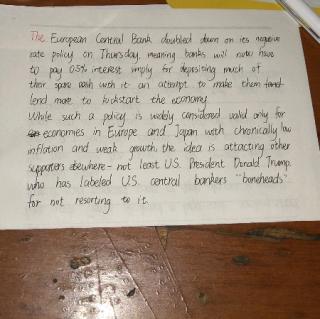 The European Central Bank doubled down on its negative
rate policy on Thursday, meaning banks will now have
to pay 0.5% interest simply for depositing much of
their spare cash with it an attempt to make them
lend more to kickstart the economy.
While such a policy is widely considered valid only for
economies in Europe and Japan with chronically low
inflation and weak growth the idea is attacting other
supporters elsewhere - not least U.S. President Donald Trump,
who has labeled U.S. central bankers "boneheads"
for not resorting to it.